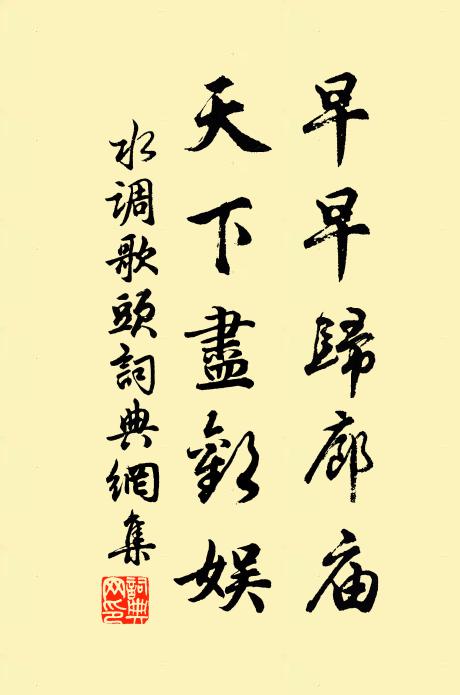 早早歸廊庙
天下盡歡娱
水调歌頭詞典網集
詞典网印